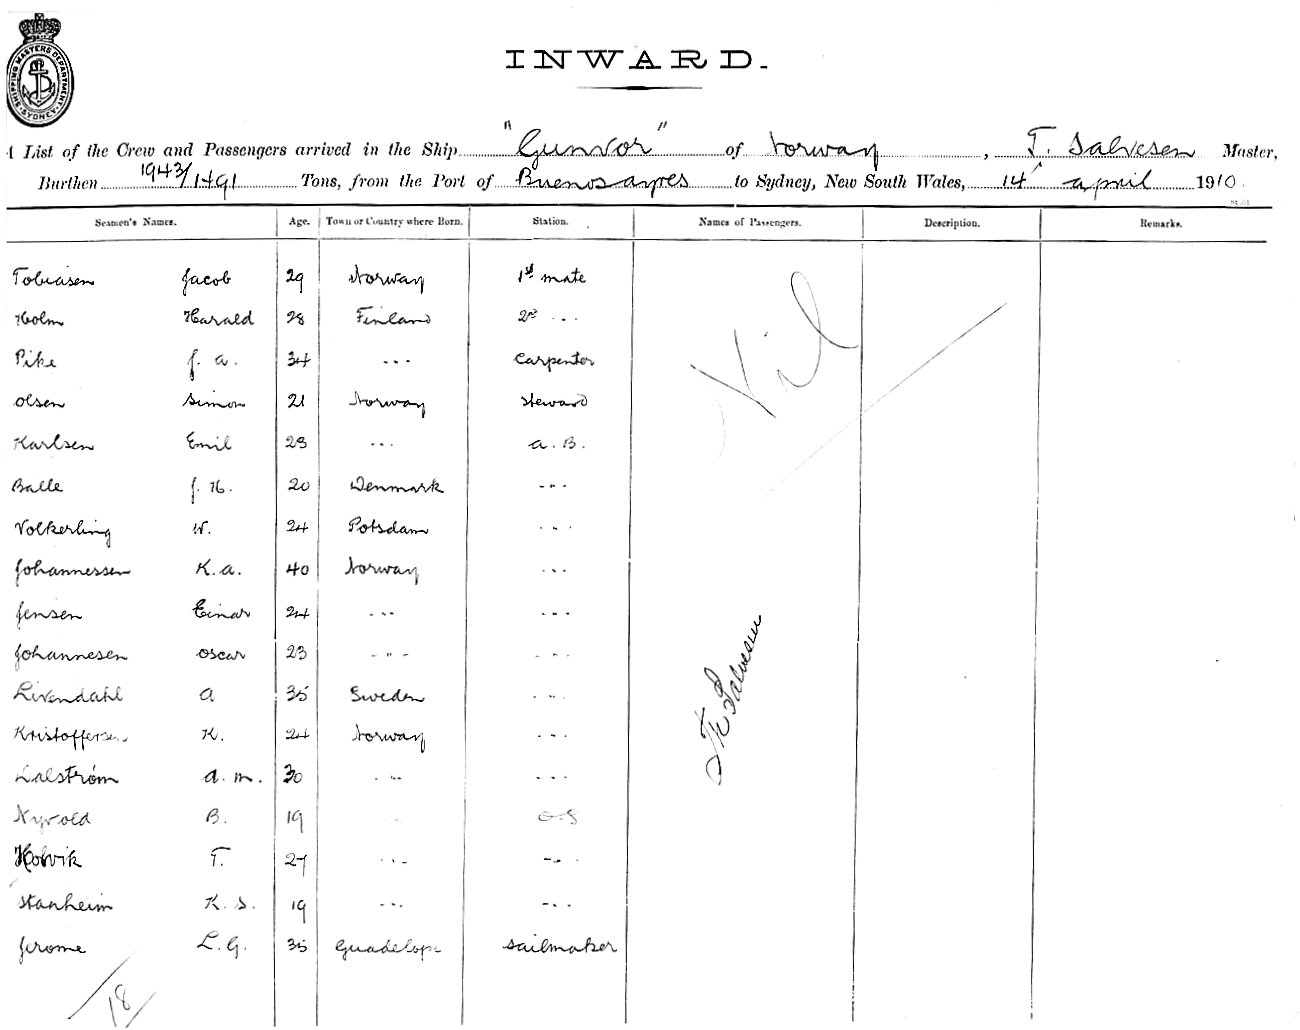 SHIPPING MASTERS DEPARTMENT
SYDNEY
INWARD.
A List of the Crew and Passengers arrived in the Ship "Gunvor" of Norway, T. Salvesen Master,
Burthen 1943/1491 Tons, from the Port of Buenos ayres to Sydney, New South Wales, 14 april 1910.
Seamen's Names. Age. Town or Country where Born. Station. Names of Passengers. Description. Remarks.
Tobiasen Jacob 29 Norway 1st mate
Holm Harald 28 Finland 2d " "
Pike J. a. 34 " " Carpenter
Olsen Simon 21 Norway Steward
Karlsen Emil 23 " " a. B.
Balle J. H. 20 Denmark " "
Volkerling W. 24 Potsdam " "
Johannessen K. a. 40 Norway " "
Jensen Einar 24 " " " "
Johannesen Oscar 23 " " " "
Livendahl A 35 Sweden " "
Kristoffersen K. 24 Norway " "
Dalstrøm a. m. 30 " " " "
Nyvold B. 19 " O.S
Holvik T. 27 " " " "
Stanheim K. S. 19 " " " "
Jerome L. G. 35 Guadelope Sailmaker
Nil
Salvesen
18